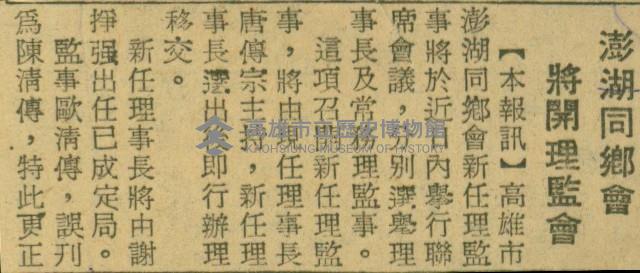 澎湖同鄉會
將開理監會
【本報訊】高雄市
澎湖同鄉會新任理監
事將於近日內舉行聯
席會議，分別選舉理
事長及常務理監事。
這項召開新任理監
事，將由任理事長
唐傳宗主持，新任理
事長選出後即行辦理
移交。
新任理事長將由謝
掙强出任已成定局。
監事歐清傳，誤刊
爲陳清傳，特此更正
高雄市立歷史博物館
KAOHSIUNG MUSEUM OF HISTORY